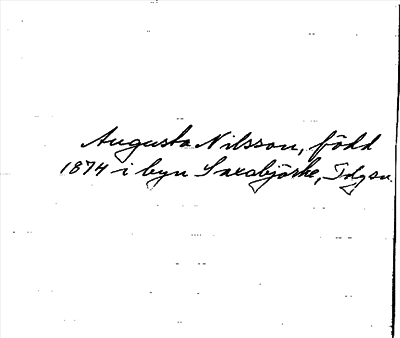 Augusta Nilsson, född
1874 i byn Saxabjörke, Tdgsn.